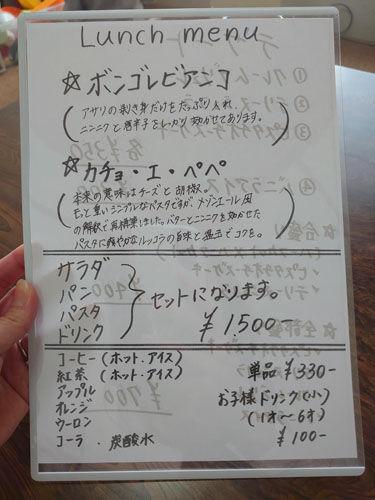 Lunch menu
☆ ボンゴレビアンコ
(アサリの剥き身だけをたっぷり入れ、
ニンニクと唐辛子をしっかり効かせてあります。)
☆ カチョ・エ・ペペ
(本来の意味はチーズと胡椒。
もっと重いシンプルなパスタですが、メゾンエール風
の解釈で再構築しました。バターとニンニクを効かせた
パスタに爽やかなルッコラの旨味と塩玉でコクを。)
サラダ
パン
パスタ
ドリンク
セットになります。
¥1,500-
コーヒー (ホット.アイス)
紅茶 (ホット.アイス)
アップル
オレンジ
ウーロン
コーラ . 炭酸水
単品 ¥330-
お子様ドリンク(小)
(1才～6才)
¥100-